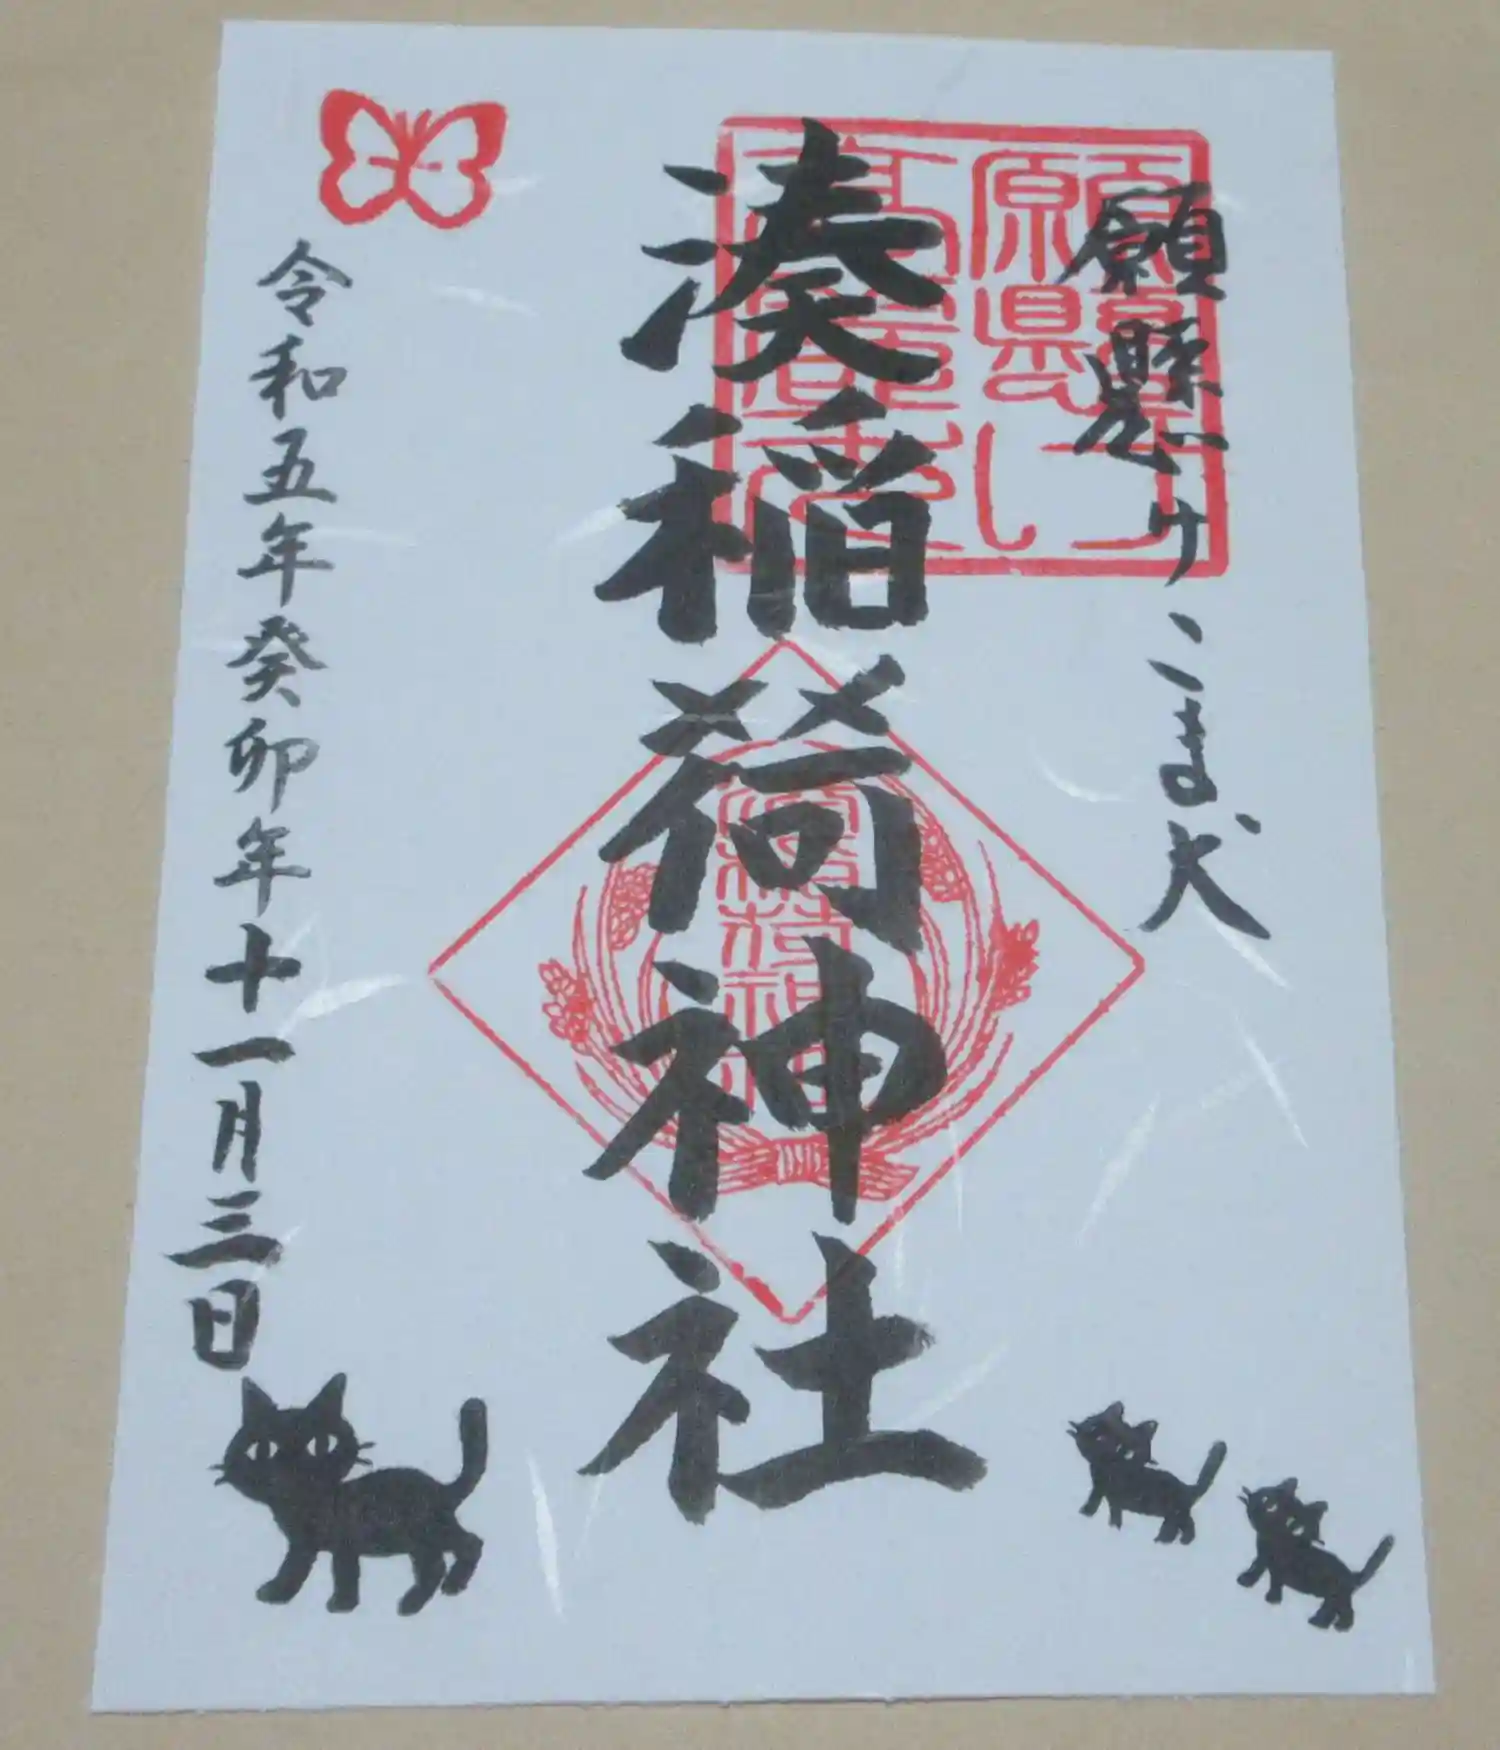 願懸けこま犬
湊稲荷神社
令和五年癸卯年十一月三日